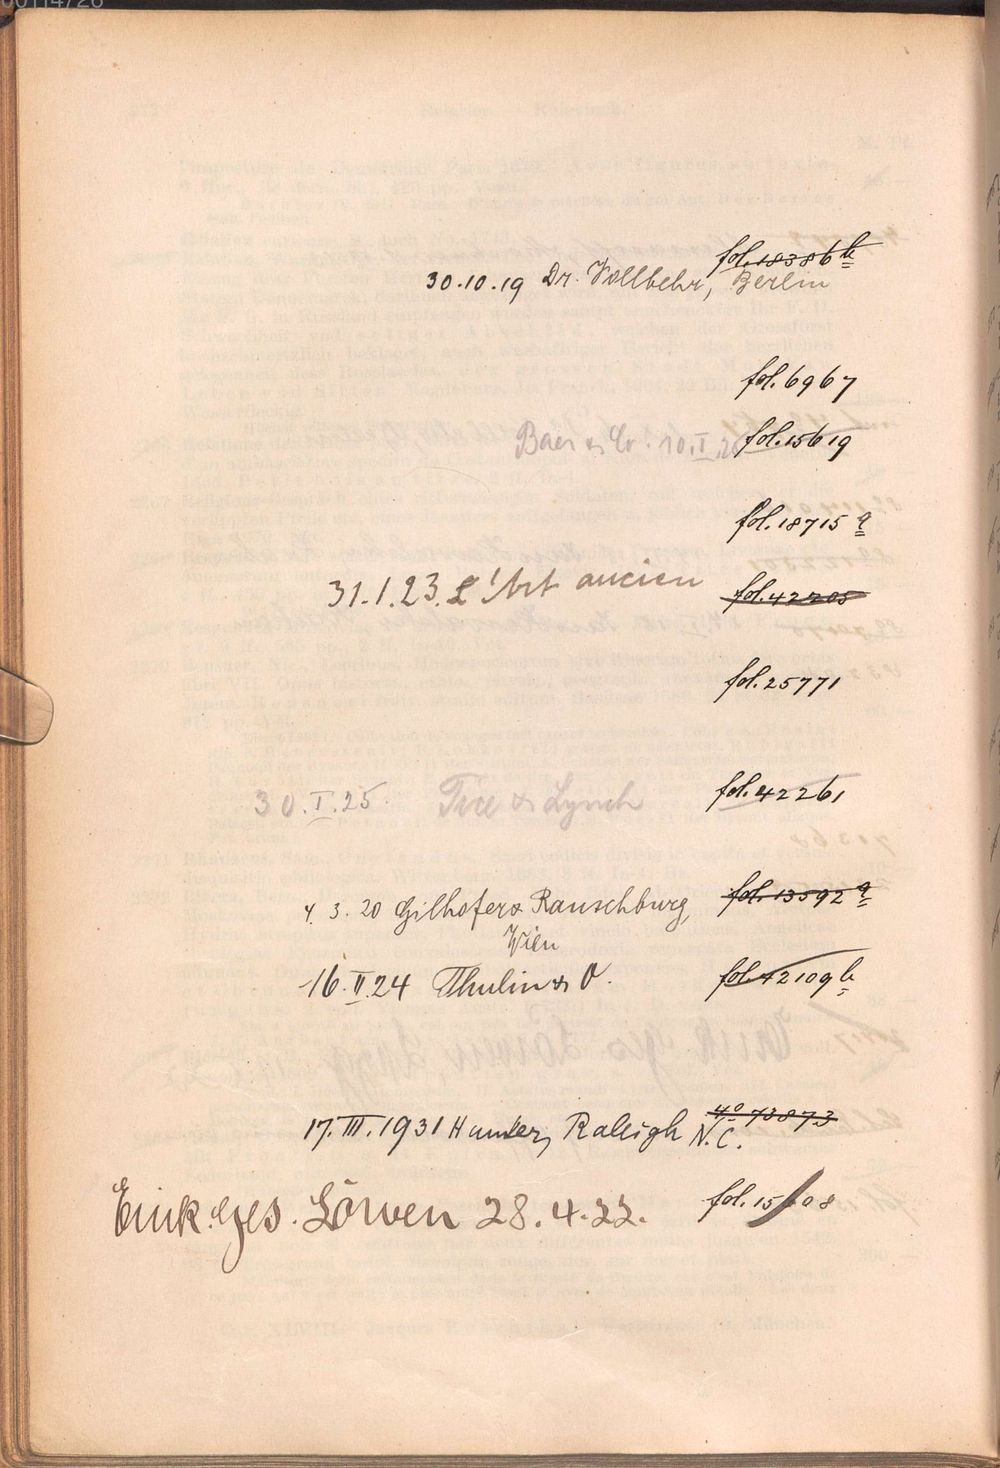 fol. 18386 b
30.10.19 Dr. Vollbehr, Berlin
fol. 6967
Baer & Co. 10.I.20 fol. 15619
fol. 18715 a
31.1.23. L'Art ancien fol. 42205
fol. 25771
30.I.25. Tice & Lynch fol. 42261
4. 3. 20 Gilhofer & Ranschburg, fol. 13592 a
Wien
16.II.24 Thulin & O. fol. 42109 b
4° 73873
17.III.1931 Hunter, Raleigh N.C.
Eink.ges. Löwen 28.4.22. fol. 15